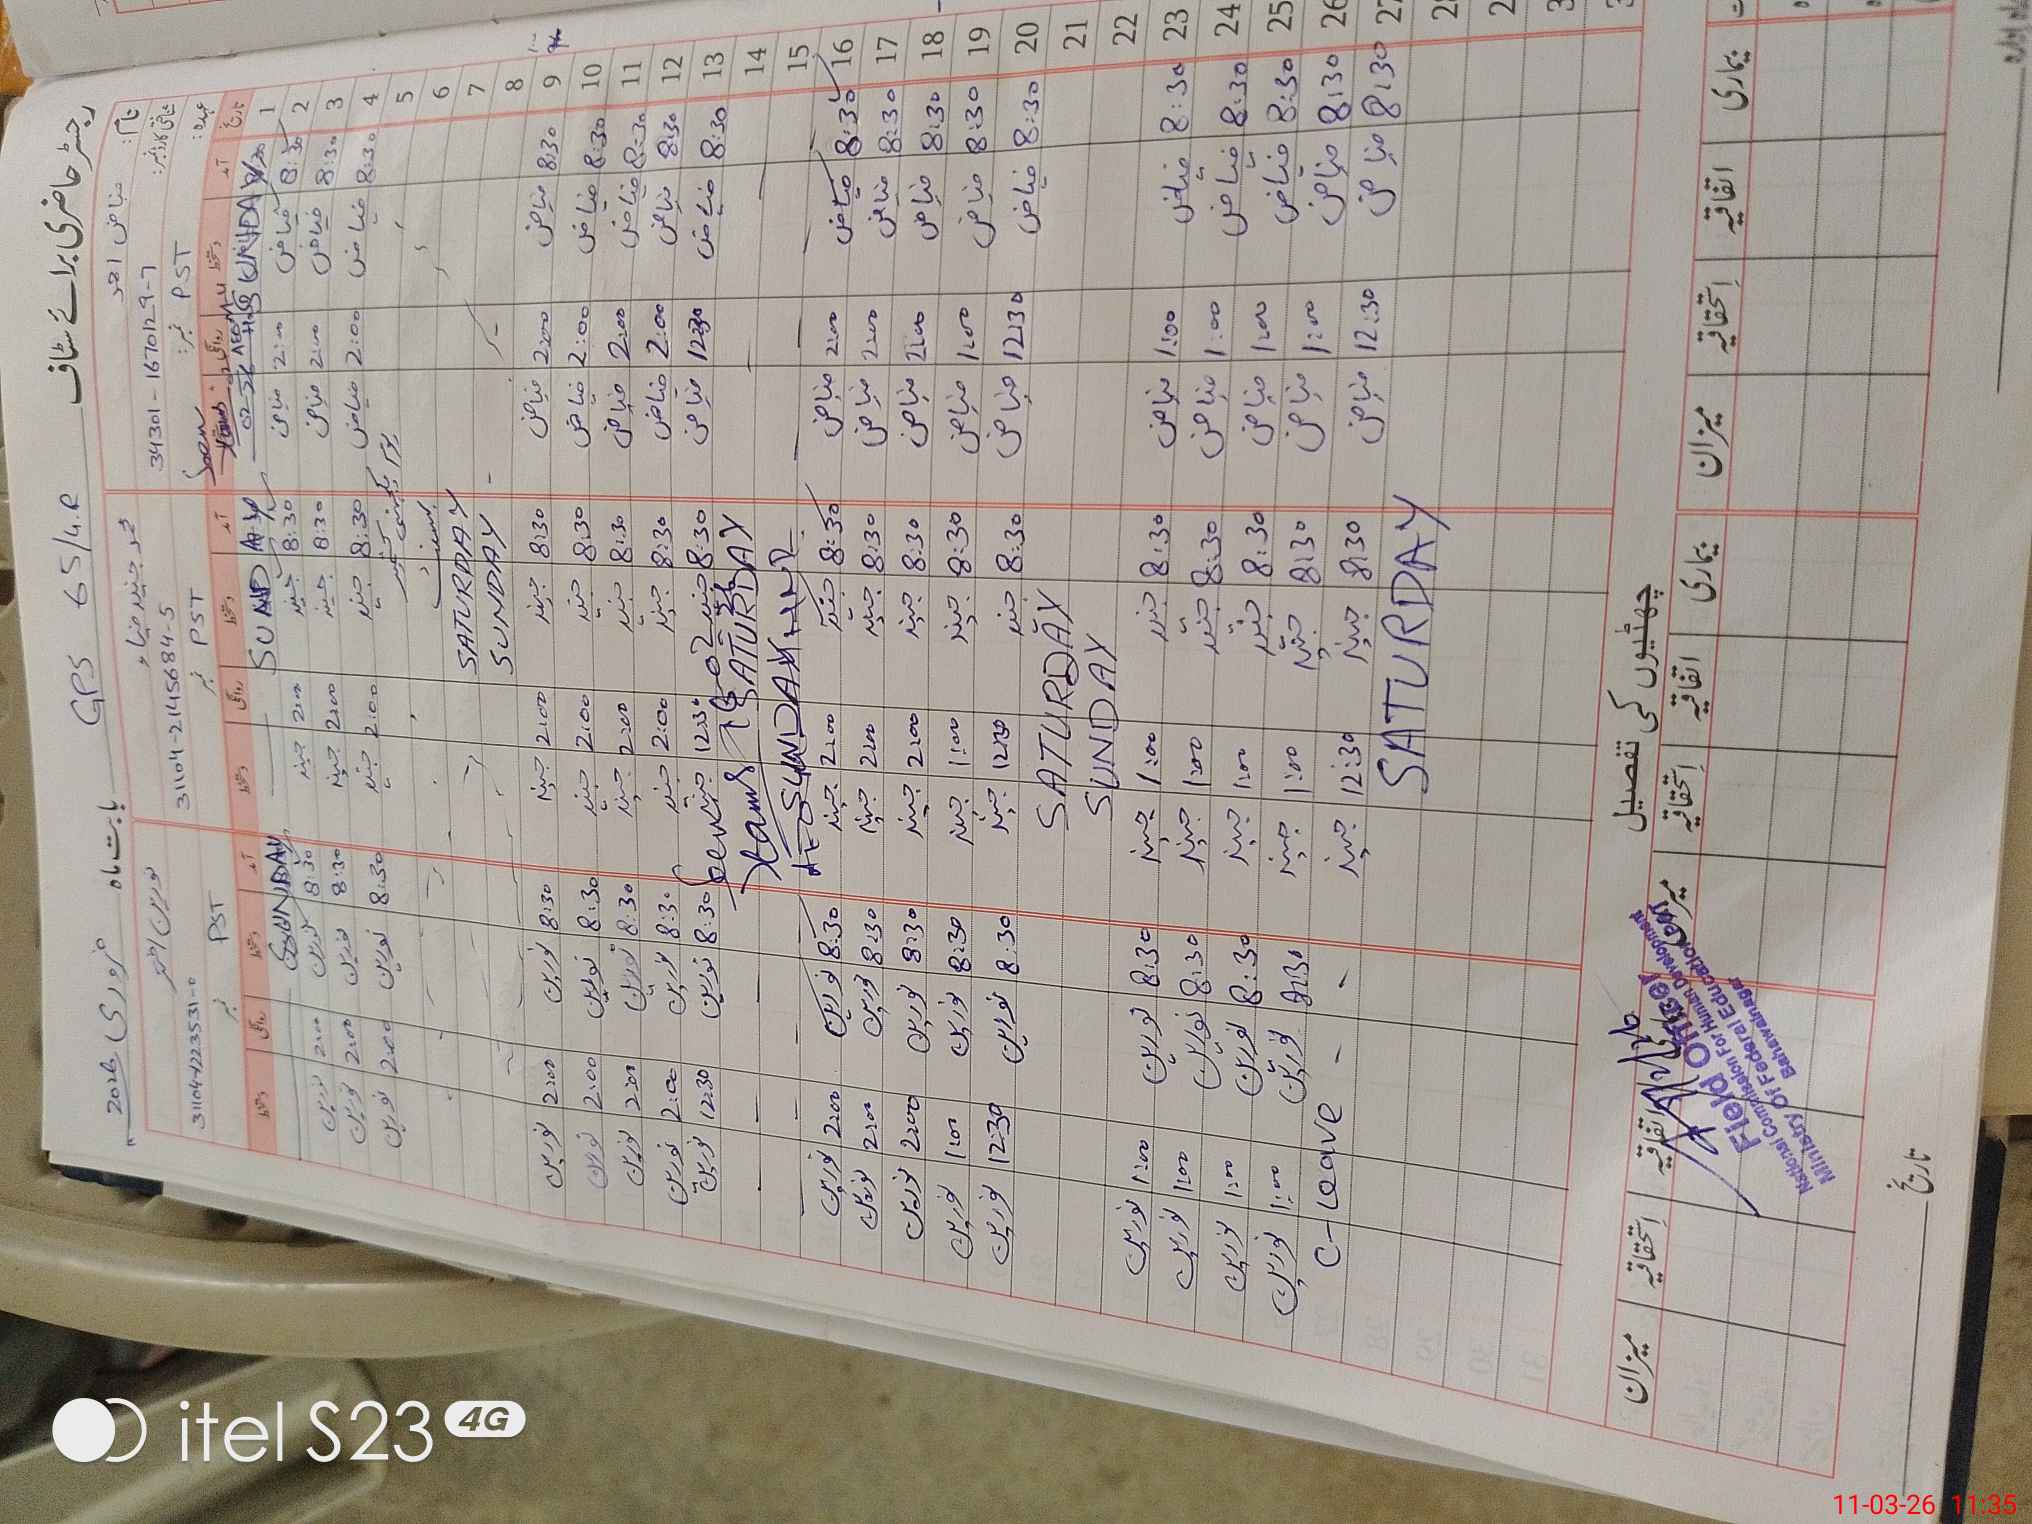 رجسٹر حاضری برائے سٹاف GPS 65/4.R بابت ماہ فروری 2026
نام: فیاض احمد
شناختی کارڈ نمبر: 34301-1670129-7
عہدہ: PST نمبر:
محمد جنید ضیاء
31104-2145684-5
PST نمبر
نورین اختر
31104-1223531-0
PST نمبر
تاریخ آمد دستخط روانگی دستخط آمد دستخط روانگی دستخط آمد دستخط روانگی دستخط
1 SUNDAY SUNDAY SUNDAY
2 8:30 فیاض 2:00 فیاض 8:30 جنید 2:00 جنید 8:30 نورین 2:00 نورین
3 8:30 فیاض 2:00 فیاض 8:30 جنید 2:00 جنید 8:30 نورین 2:00 نورین
4 8:30 فیاض 2:00 فیاض 8:30 جنید 2:00 جنید 8:30 نورین 2:00 نورین
5
6
7 SATURDAY
8 SUNDAY
9 8:30 فیاض 2:00 فیاض 8:30 جنید 2:00 جنید 8:30 نورین 2:00 نورین
10 8:30 فیاض 2:00 فیاض 8:30 جنید 2:00 جنید 8:30 نورین 2:00 نورین
11 8:30 فیاض 2:00 فیاض 8:30 جنید 2:00 جنید 8:30 نورین 2:00 نورین
12 8:30 فیاض 2:00 فیاض 8:30 جنید 2:00 جنید 8:30 نورین 2:00 نورین
13 8:30 فیاض 12:30 فیاض 8:30 جنید 12:30 جنید 8:30 نورین 12:30 نورین
14 SATURDAY
15 SUNDAY
16 8:30 فیاض 2:00 فیاض 8:30 جنید 2:00 جنید 8:30 نورین 2:00 نورین
17 8:30 فیاض 2:00 فیاض 8:30 جنید 2:00 جنید 8:30 نورین 2:00 نورین
18 8:30 فیاض 2:00 فیاض 8:30 جنید 2:00 جنید 8:30 نورین 2:00 نورین
19 8:30 فیاض 1:00 فیاض 8:30 جنید 1:00 جنید 8:30 نورین 1:00 نورین
20 8:30 فیاض 12:30 فیاض 8:30 جنید 12:30 جنید 8:30 نورین 12:30 نورین
21 SATURDAY
22 SUNDAY
23 8:30 فیاض 1:00 فیاض 8:30 جنید 1:00 جنید 8:30 نورین 1:00 نورین
24 8:30 فیاض 1:00 فیاض 8:30 جنید 1:00 جنید 8:30 نورین 1:00 نورین
25 8:30 فیاض 1:00 فیاض 8:30 جنید 1:00 جنید 8:30 نورین 1:00 نورین
26 8:30 فیاض 1:00 فیاض 8:30 جنید 1:00 جنید 8:30 نورین 1:00 نورین
27 8:30 فیاض 12:30 فیاض 8:30 جنید 12:30 جنید - - C-Leave
SATURDAY
چھٹیوں کی تفصیل
بیماری اتفاقیہ استحقاقیہ میزان بیماری اتفاقیہ استحقاقیہ میزان بیماری اتفاقیہ استحقاقیہ میزان
Field Officer
National Commission For Human Development
Ministry Of Federal Education
Bahawalnagar
تاریخ
itel S23 4G
11-03-26 11:35